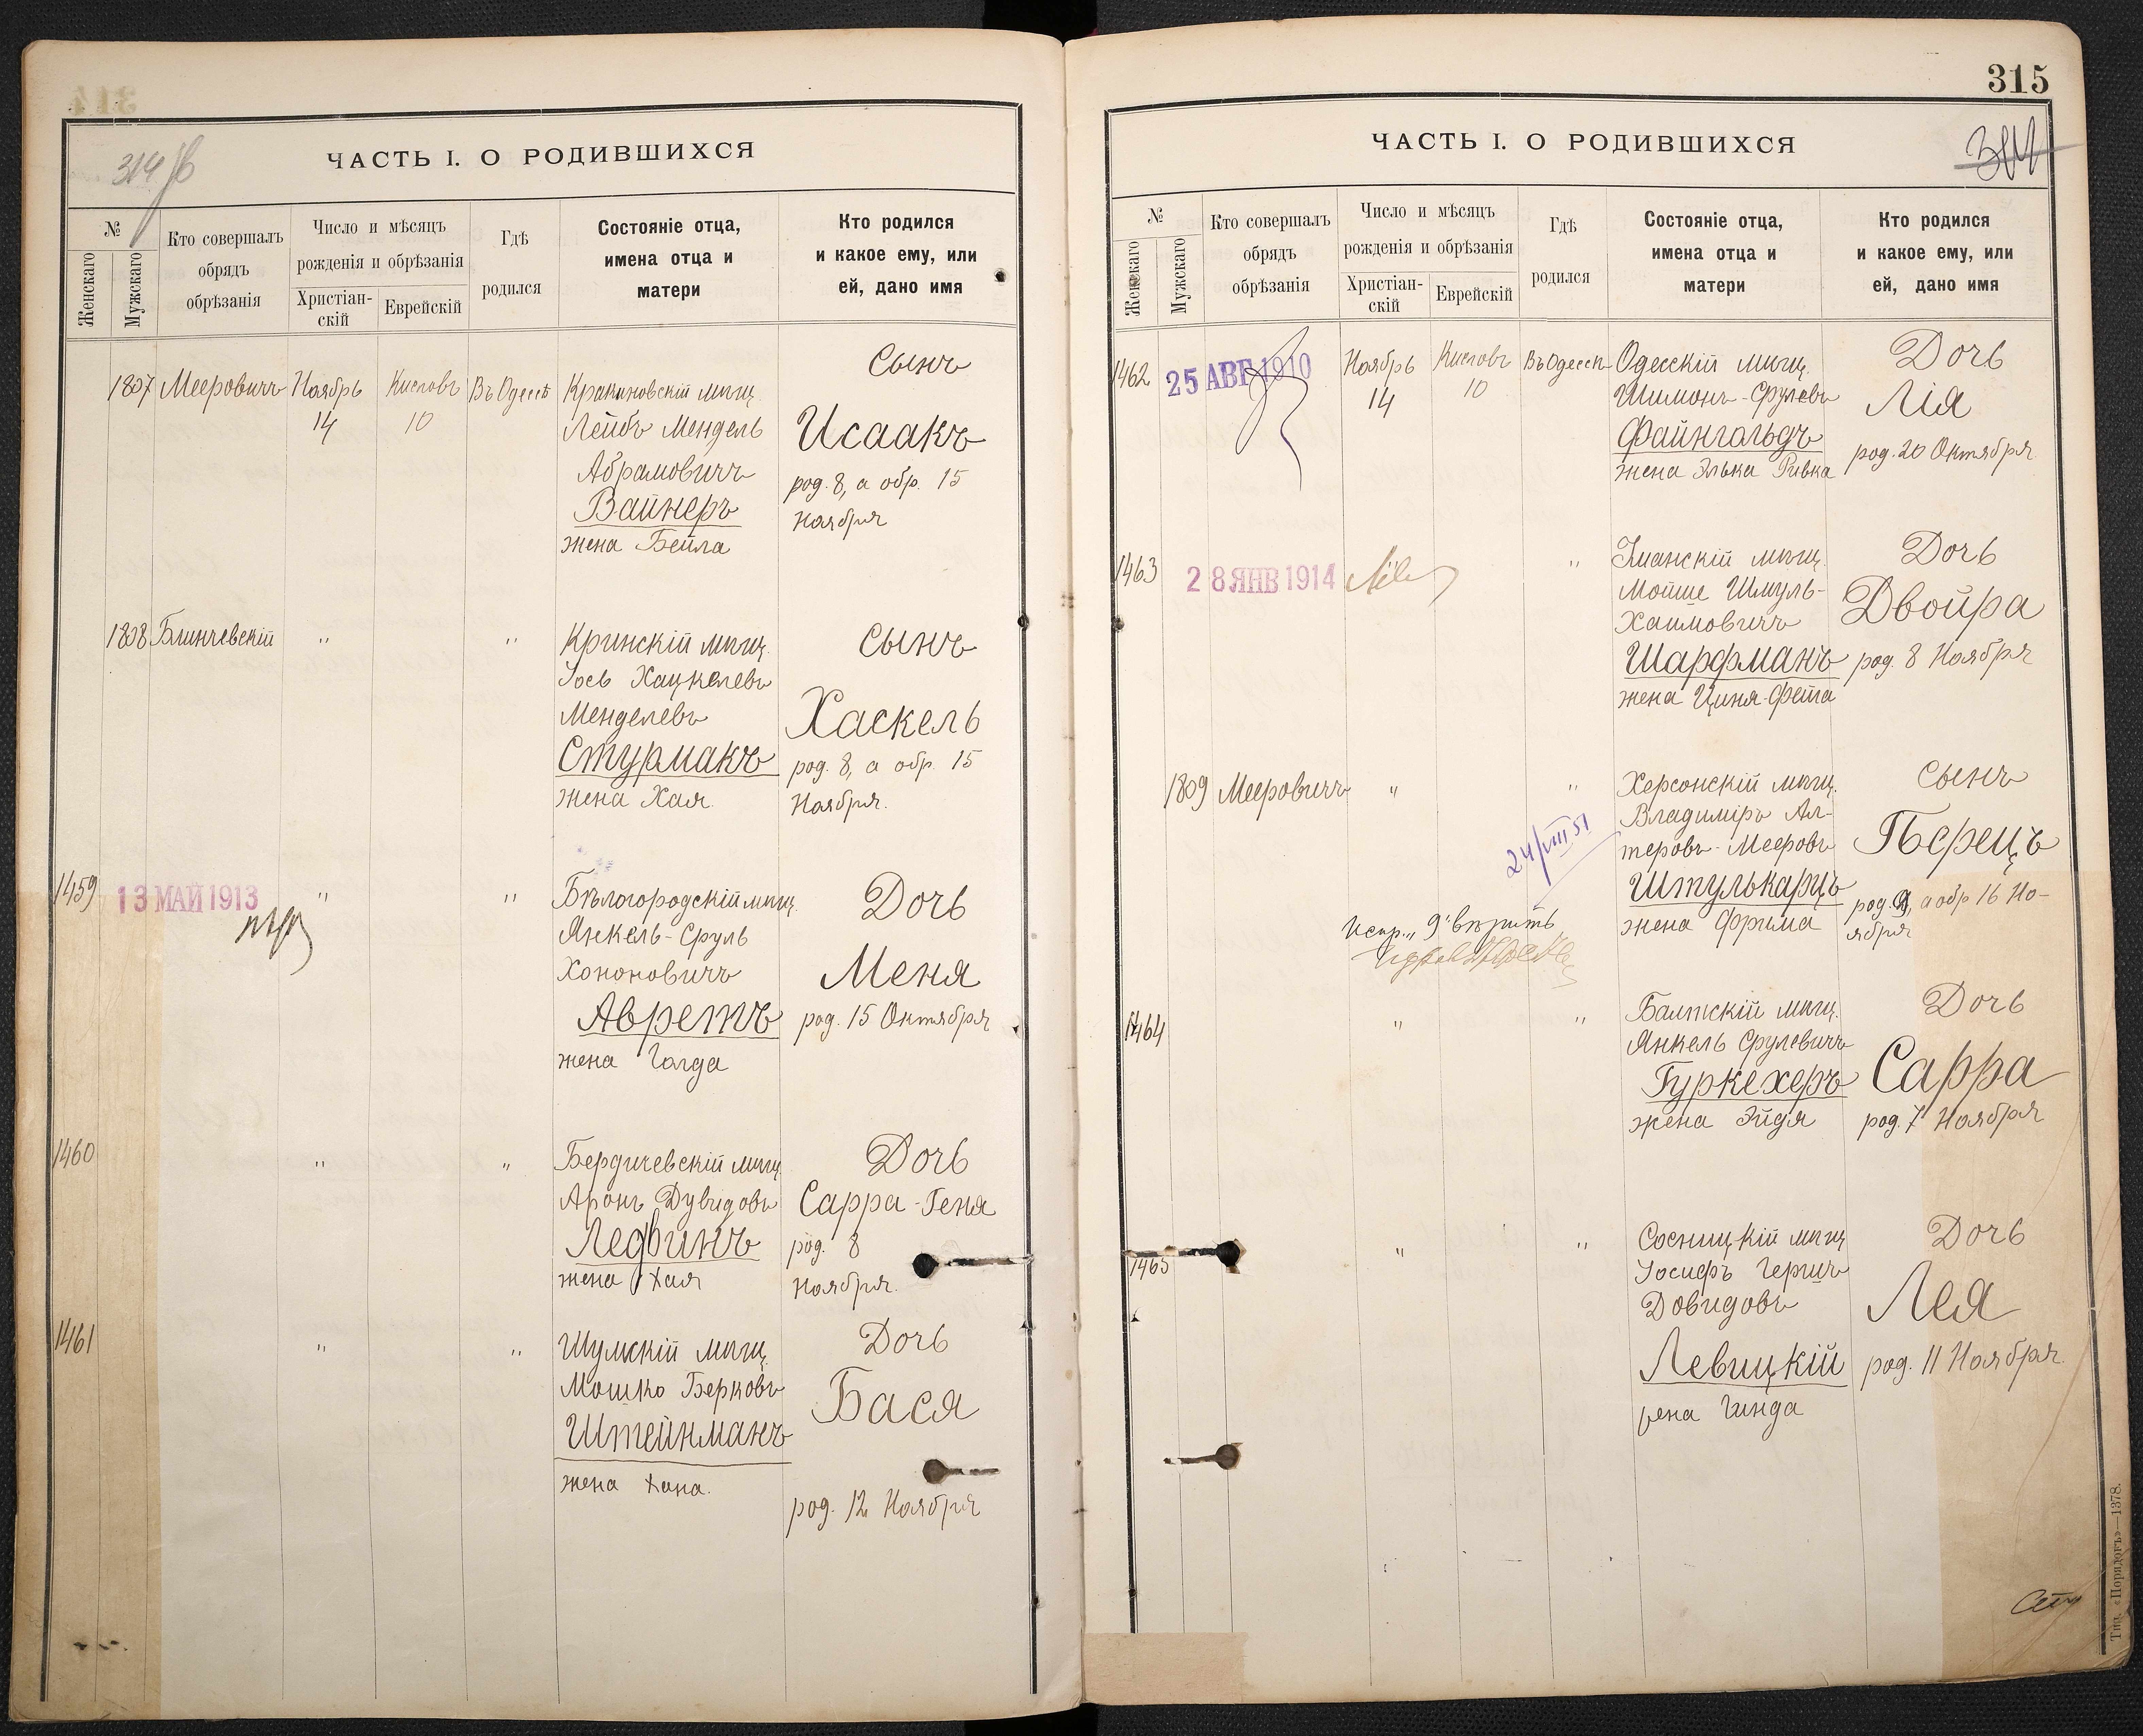 314
ЧАСТЬ I. О РОДИВШИХСЯ
№
Женскаго
Мужскаго
Кто совершалъ
обрядъ
обрѣзанія
Число и мѣсяцъ
рожденія и обрѣзанія
Христіан-
скій
Еврейскій
Гдѣ
родился
Состояніе отца,
имена отца и
матери
Кто родился
и какое ему, или
ей, дано имя
1807 Мееровичъ Ноябрь 14 Кислевъ 10 Въ Одессѣ
Лейбъ Мендель
Абрамовичъ
Вайнеръ
жена Бейла
Сынъ
Исаакъ
род. 8, а обр. 15
Ноября
1808 Блинчевскій " "
Кринскій мѣщ.
Іось Хацкелевъ
Менделевъ
Стурмакъ
жена Хая
Сынъ
Хаскель
род. 8, а обр. 15
Ноября.
1459 13 МАЙ 1913 " "
Бѣлогородскій мѣщ.
Янкель-Сруль
Хононовичъ
Авретъ
жена Голда
Дочь
Меня
род. 15 Октября
1460 " "
Бердичевскій мѣщ.
Аронъ Дувидовъ
жена Хая
Дочь
Сарра-Геня
род. 8
Ноября.
1461 " "
Шумскій мѣщ.
Мошко Берковъ
Штейнманъ
жена Хана.
Дочь
Бася
род. 12 Ноября
315
ЧАСТЬ I. О РОДИВШИХСЯ
314
№
Женскаго
Мужскаго
Кто совершалъ
обрядъ
обрѣзанія
Число и мѣсяцъ
рожденія и обрѣзанія
Христіан-
скій
Еврейскій
Гдѣ
родился
Состояніе отца,
имена отца и
матери
Кто родился
и какое ему, или
ей, дано имя
1462 25 АВГ 1910 Ноябрь 14 Кислевъ 10 Въ Одессѣ
Одесскій мѣщ.
Шимонъ-Срулевъ
Файнгольдъ
жена Элька Ривка
Дочь
Лія
род. 20 Октября
1463 28 ЯНВ 1914 "
Уманскій мѣщ.
Мойше Шмуль-
Хаимовичъ
Шарфманъ
жена Циня-Фейга
Дочь
Двойра
род. 8 Ноября
1809 Мееровичъ " "
24/VIII 51
Херсонскій мѣщ.
Владиміръ Ал-
теровъ-Мееровъ
Штулькарцъ
жена Фрима
Сынъ
Перецъ
род. 9, а обр 16 Но-
ября
Испр. "9" вѣрить
1464 " "
Балтскій мѣщ.
Янкель Срулевичъ
Гуркехеръ
жена Эйдя
Дочь
Сарра
род. 7 Ноября
1465 " "
Сосницкій мѣщ
Іосифъ Гершъ
Довидовъ
Левицкій
жена Гинда
Дочь
Лея
род. 11 Ноября.
Тип. «Порядокъ»—1378.